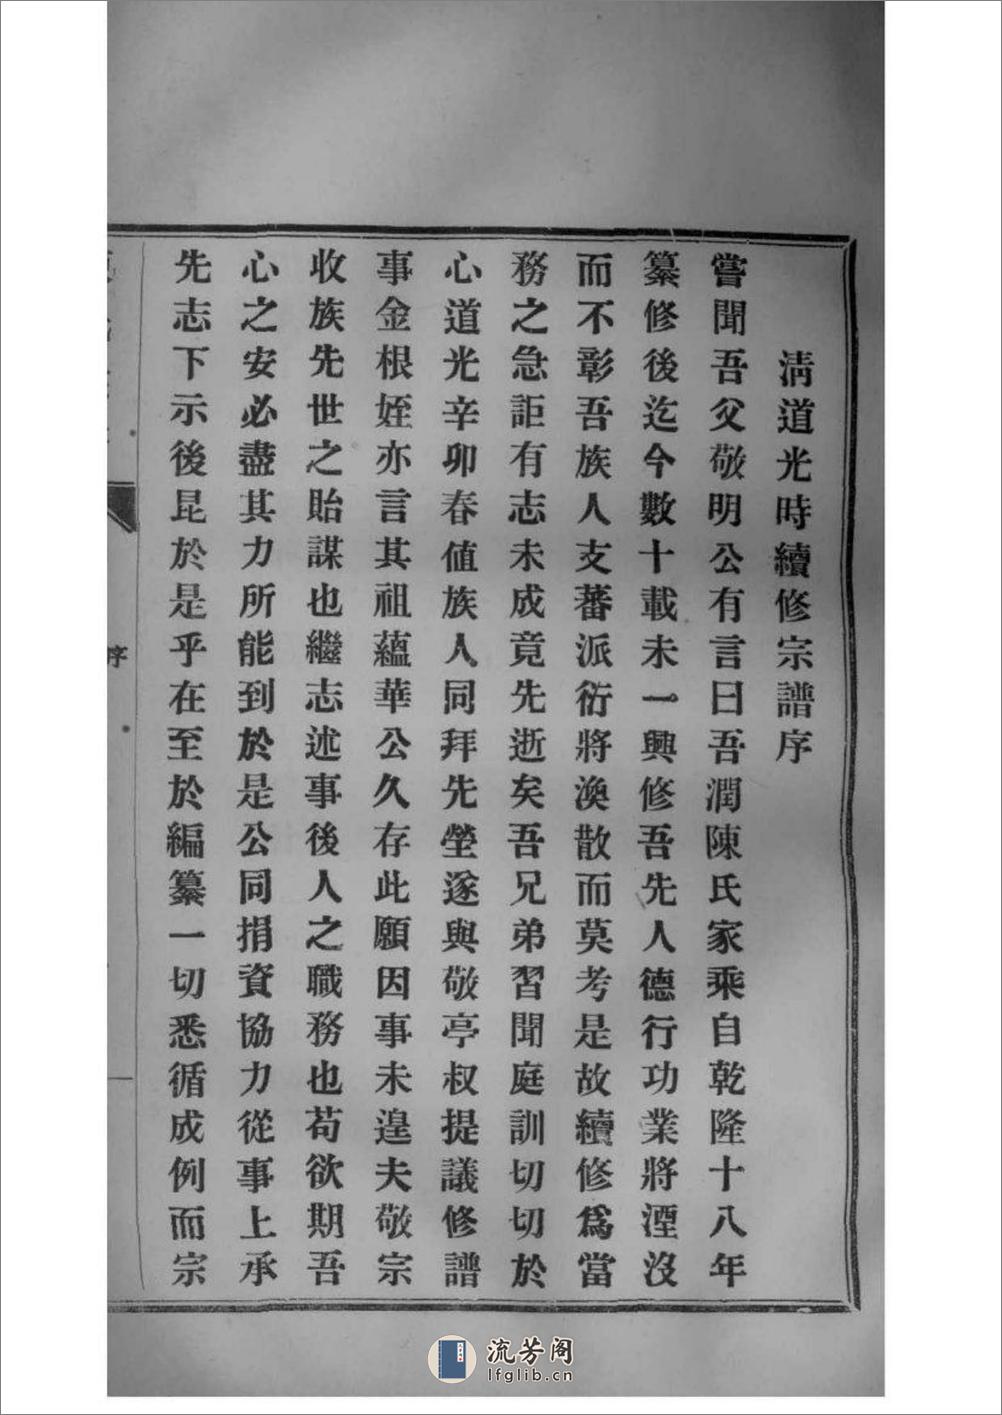 清道光時續修宗譜序
嘗聞吾父敬明公有言曰吾潤陳氏家乘自乾隆十八年
纂修後迄今數十載未一興修吾先人德行功業將湮沒
而不彰吾族人支蕃派衍將渙散而莫考是故續修爲當
務之急詎有志未成竟先逝矣吾兄弟習聞庭訓切切於
心道光辛卯春值族人同拜先塋遂與敬亭叔提議修譜
事金根姪亦言其祖蘊華公久存此願因事未遑夫敬宗
收族先世之貽謀也繼志述事後人之職務也苟欲期吾
心之安必盡其力所能到於是公同捐資協力從事上承
先志下示後昆於是乎在至於編纂一切悉循成例而宗
序
流芳阁
lfglib.cn